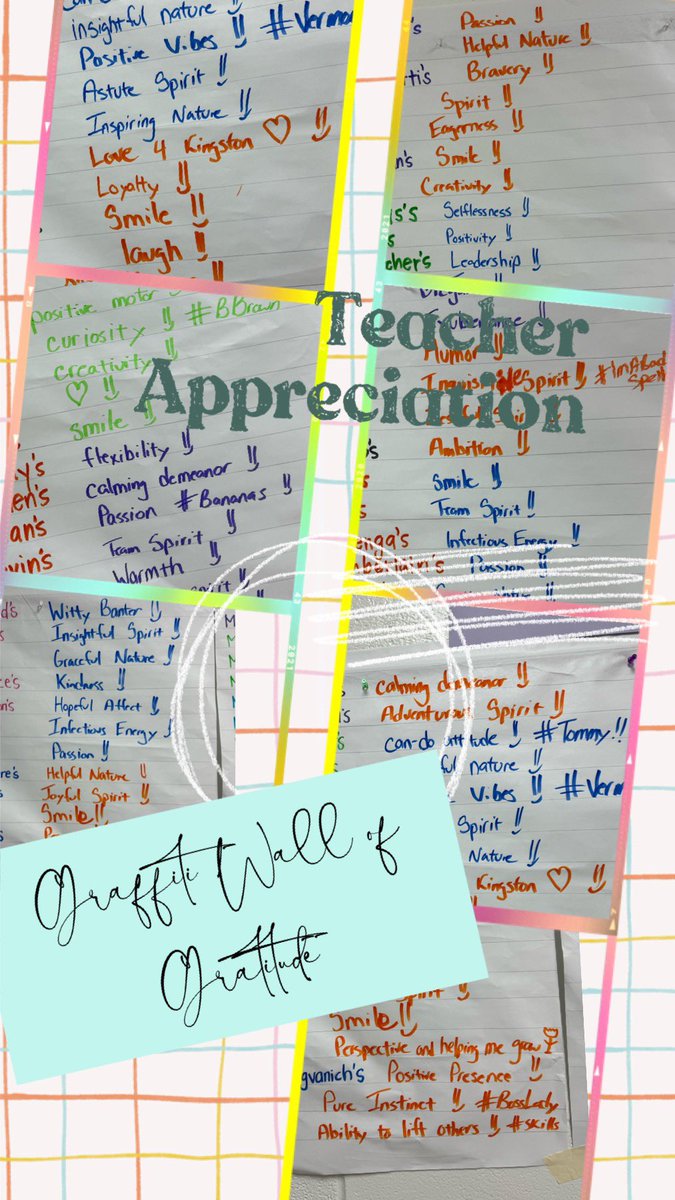 insightful nature !!
Positive Vibes !! #Vermo
Astute Spirit !!
Inspiring Nature !!
Love 4 Kingston ♡ !!
Loyalty !!
Smile !!
laugh !!
Passion !!
Helpful Nature !!
Bravery !!
Spirit !!
Eagerness !!
Smile !!
Creativity !!
Selflessness !!
Positivity !!
cher's Leadership !!
Teacher
Appreciation
positive motor !!
curiosity !! #BBrawn
creativity !!
♡ !!
smile !!
flexibility !!
calming demeanor !!
Passion #Bananas !!
Team Spirit !!
Warmth !!
Humor !!
Spirit !! #ImABad
Spell
Ambition !!
Smile !!
Team Spirit !!
enga's Infectious Energy !!
mberlain's Passion !!
Witty Banter !!
Insightful Spirit !!
Graceful Nature !!
Kindness !!
Hopeful Affect !!
Infectious Energy !!
Passion !!
Helpful Nature !!
Joyful Spirit !!
Smile !!
calming demeanor !!
Adventurous Spirit !!
can-do attitude !! #Tommy!!
ful nature !!
Vibes !! #Verm
Spirit !!
Nature !!
Kingston ♡ !!
Graffiti Wall of
Gratitude
Smile !!
Perspective and helping me grow
gvanich's Positive Presence !!
Pure Instinct !! #BossLady
Ability to lift others !! #skills